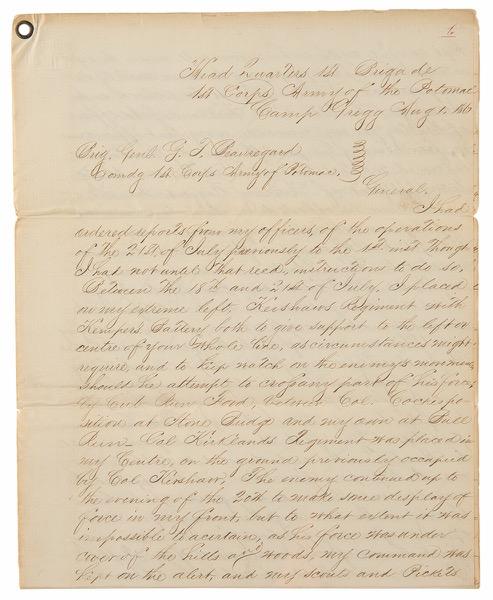 6
Head Quarters 1st Brigade
1st Corps Army of the Potomac
Camp Gregg Aug 1. 186
Brig. Genl G. T. Beauregard
Comdg 1st Corps Army of Potomac.
General.
I had
ordered reports from my officers of the operations
of the 21st of July previously to the 1st inst though
I had not until that recd, instructions to do so.
Between the 18th and 21st of July, I placed
on my extreme left, Kershaws Regiment with
Kempers Battery both to give support to the left or
centre of your whole line, as circumstances might
require, and to keep watch on the enemy's movemen
should he attempt to cross any part of his force
by Cub Run Ford, between Col. Cockes po-
sition at Stone Bridge and my own at Bull
Run - Col Kirklands Regiment was placed in
my Centre, on the ground previously occupied
by Col Kershaw. The enemy continued up to
the evening of the 20th to make some display of
force in my front, but to what extent it was
impossible to ascertain, as his force was under
cover of the hills and woods, my command was
kept on the alert, and my scouts and Pickets